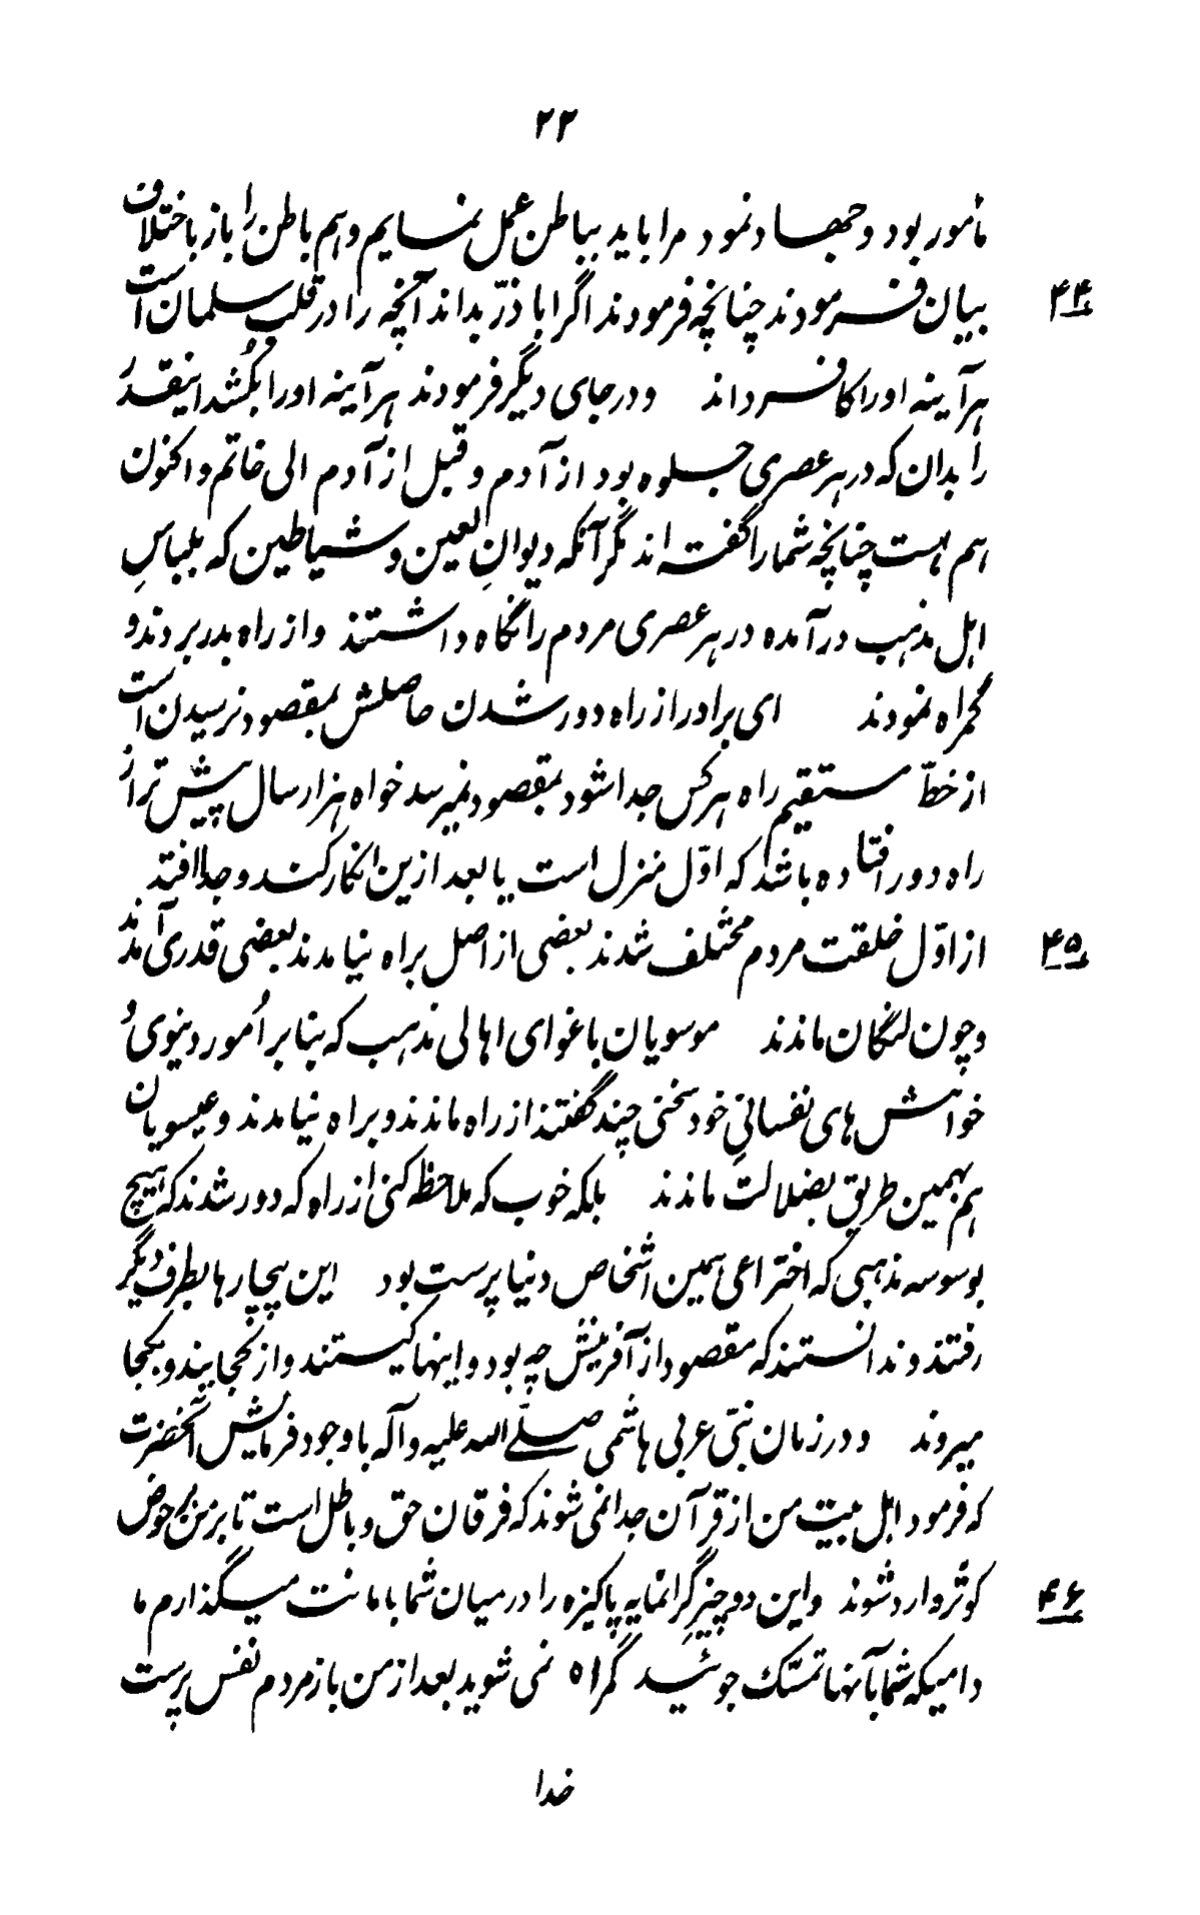 ۲۲
مأمور بود و جهاد نمود مرا باید بباطن عمل نمایم و هم باطن را باز باختلاف
بیان فرمودند چنانچه فرمودند اگر اباذرّ بداند آنچه را در قلب سلمان است
۴۴
هرآینه اورا کافر داند و در جای دیگر فرمودند هرآینه اورا بکُشد اینقدر
را بدان که در هر عصری جلوه بود از آدم و قبل از آدم الی خاتم و اکنون
هم هست چنانچه شمارا گفته‌اند مگر آنکه دیوانِ لعین و شیاطین که بلباسِ
اهل مذهب درآمده در هر عصری مردم را نگاه داشتند و از راه بدر بردند و
گمراه نمودند ای برادر از راه دور شدن حاصلش بمقصود نرسیدن است
از خطّ مستقیم راه هر کس جدا شود بمقصود نمیرسد خواه هزار سال پیش‌تر از
راه دور افتاده باشد که اوّل منزل است یا بعد ازین انکار کند و جدا افتد
از اوّل خلقت مردم مختلف شدند بعضی از اصل براه نیامدند بعضی قدری آمدند
۴۵
و چون لنگان ماندند موسویان باغوای اهالی مذهب که بنابر اُمور دنیوی و
خواهش‌های نفسانیِ خود سخنی چند گفتند از راه ماندند و براه نیامدند و عیسویان
هم بهمین طریق بضلالت ماندند بلکه خوب که ملاحظه کنی از راه که دور شدند که هیچ
بوسوسه مذهبی که اختراعی همین اشخاص دنیاپرست بود این بیچارها بطرف دیگر
رفتند و ندانستند که مقصود از آفرینش چه بود و اینها کیستند و از کجایند و بکجا
میروند و در زمان نبیّ عربی هاشمی صلّے الله علیه وآله باوجود فرمایش آنحضرت
که فرمود اهل بیت من از قرآن جدا نمی شوند که فرقان حق و باطل است تا بر من بر حوض
کوثر وارد شوند و این دو چیز گرانمایهِ پاکیزه را در میان شما بامانت میگذارم ما
۴۶
دامیکه شما بآنها تمسّک جوئید گمراه نمی شوید بعد از من باز مردم نفس پرست
خدا